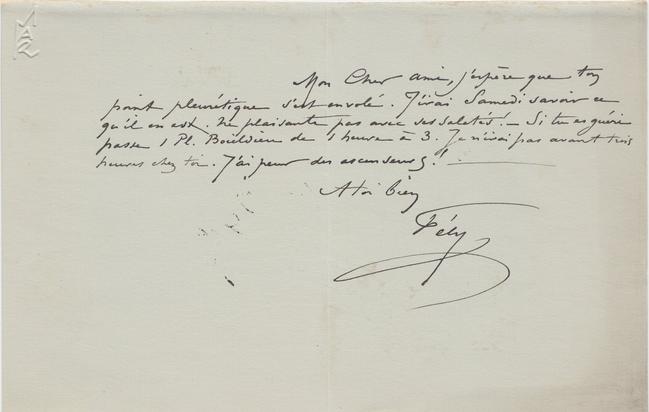 Mon Cher ami, j'espère que ton
point pleurétique s'est envolé. J'irai Samedi savoir ce
qu'il en est. Ne plaisante pas avec ses saletés. — Si tu es guéri
passe 1 Pl. Boieldieu de 1 heure à 3. Je n'irai pas avant trois
heures chez toi. J'ai peur des ascenseurs !
A toi bien
Fély